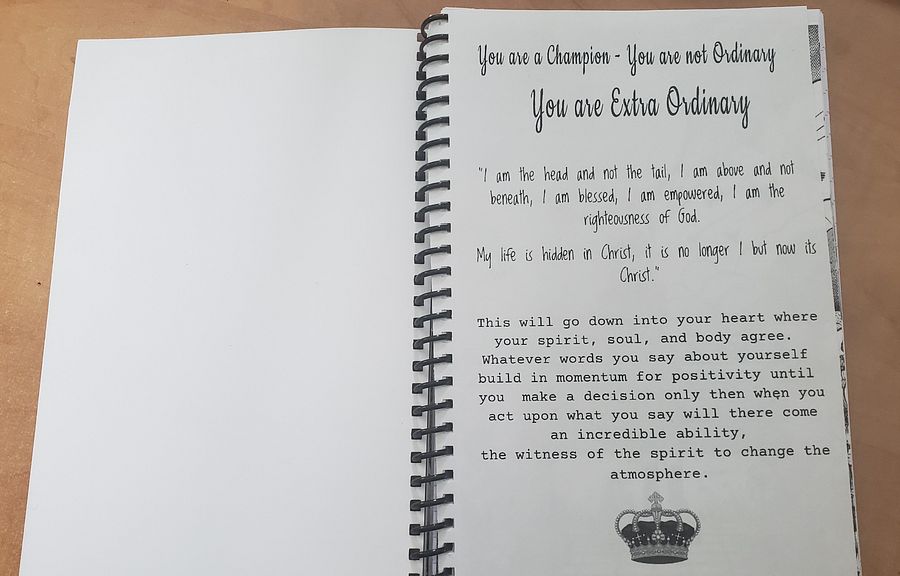 You are a Champion - You are not Ordinary
You are Extra Ordinary
"I am the head and not the tail, I am above and not
beneath, I am blessed, I am empowered, I am the
righteousness of God.
My life is hidden in Christ, it is no longer I but now its
Christ."
This will go down into your heart where
your spirit, soul, and body agree.
Whatever words you say about yourself
build in momentum for positivity until
you make a decision only then when you
act upon what you say will there come
an incredible ability,
the witness of the spirit to change the
atmosphere.